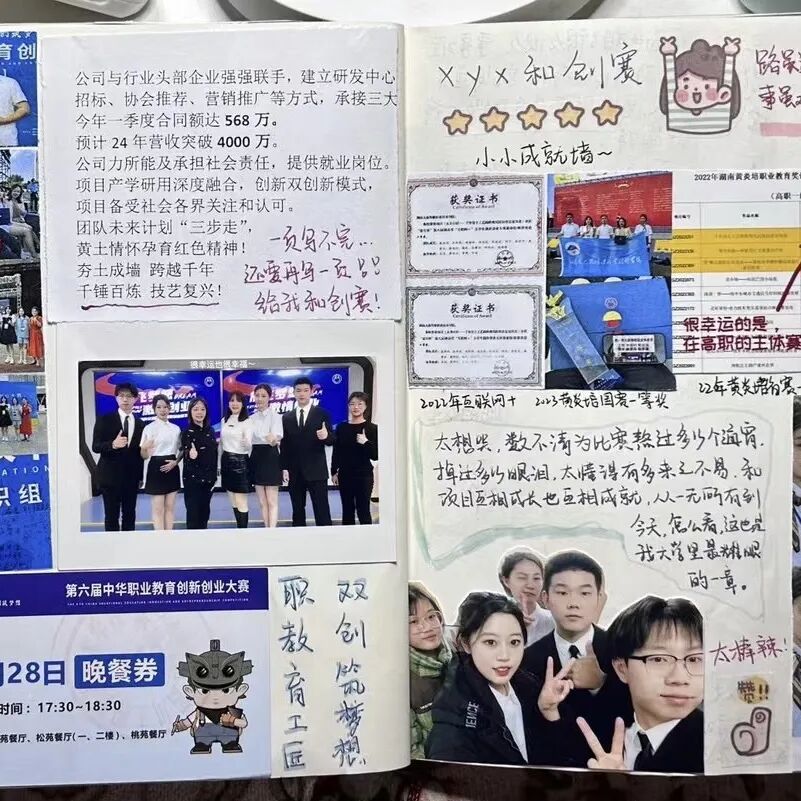 公司与行业头部企业强强联手，建立研发中心
招标、协会推荐、营销推广等方式，承接三大
今年一季度合同额达 568 万。
预计 24 年营收突破 4000 万。
公司力所能及承担社会责任，提供就业岗位。
项目产学研用深度融合，创新双创新模式，
项目备受社会各界关注和认可。
团队未来计划“三步走”，
黄土情怀孕育红色精神！
夯土成墙 跨越千年
千锤百炼 技艺复兴！
一页写不完...
还要再写一页
给我和创赛！
育创
很幸运也很幸福~
织组
第六届中华职业教育创新创业大赛
月28日 晚餐券
时间：17:30~18:30
苑餐厅、松苑餐厅(一、二楼）、桃苑餐厅
双创筑梦想
职教育工匠
xyx和创赛
小小成就墙~
路虽
事虽
获奖证书
Certificate of Award
获奖证书
Certificate of Award
2022年湖南黄炎培职业教育奖
（高职一
很幸运的是，
在高职的主体赛
2022年互联网+
2023黄炎培国赛一等奖
22年黄炎培省赛
太想哭，数不清为比赛熬过多少个通宵，
掉过多少眼泪，太懂得有多来之不易，和
项目互相成长也互相成就，从一无所有到
今天，怎么看，这也是
我大学里最耀眼
的一章。
太棒辣！
赞!!